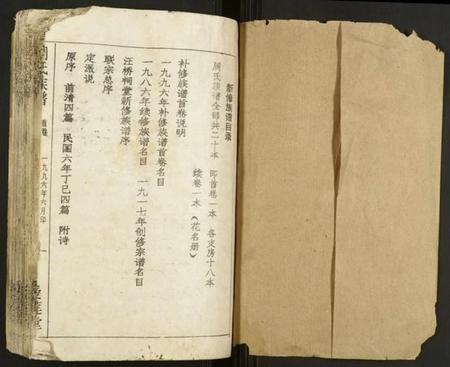 新修族谱目录
周氏族谱全部共二十本 即首卷一本 各支房十八本
续卷一本（花名册）
补修族谱首卷说明
一九九六年补修族谱首卷名目
一九八六年续修族谱名目 一九一七年创修宗谱名目
汪桥祠堂新修族谱序
联宗总序
定派说
原序 前清四篇 民国六年丁巳四篇 附诗
周氏族谱 首卷 一九九六年六月印 一
爱莲堂